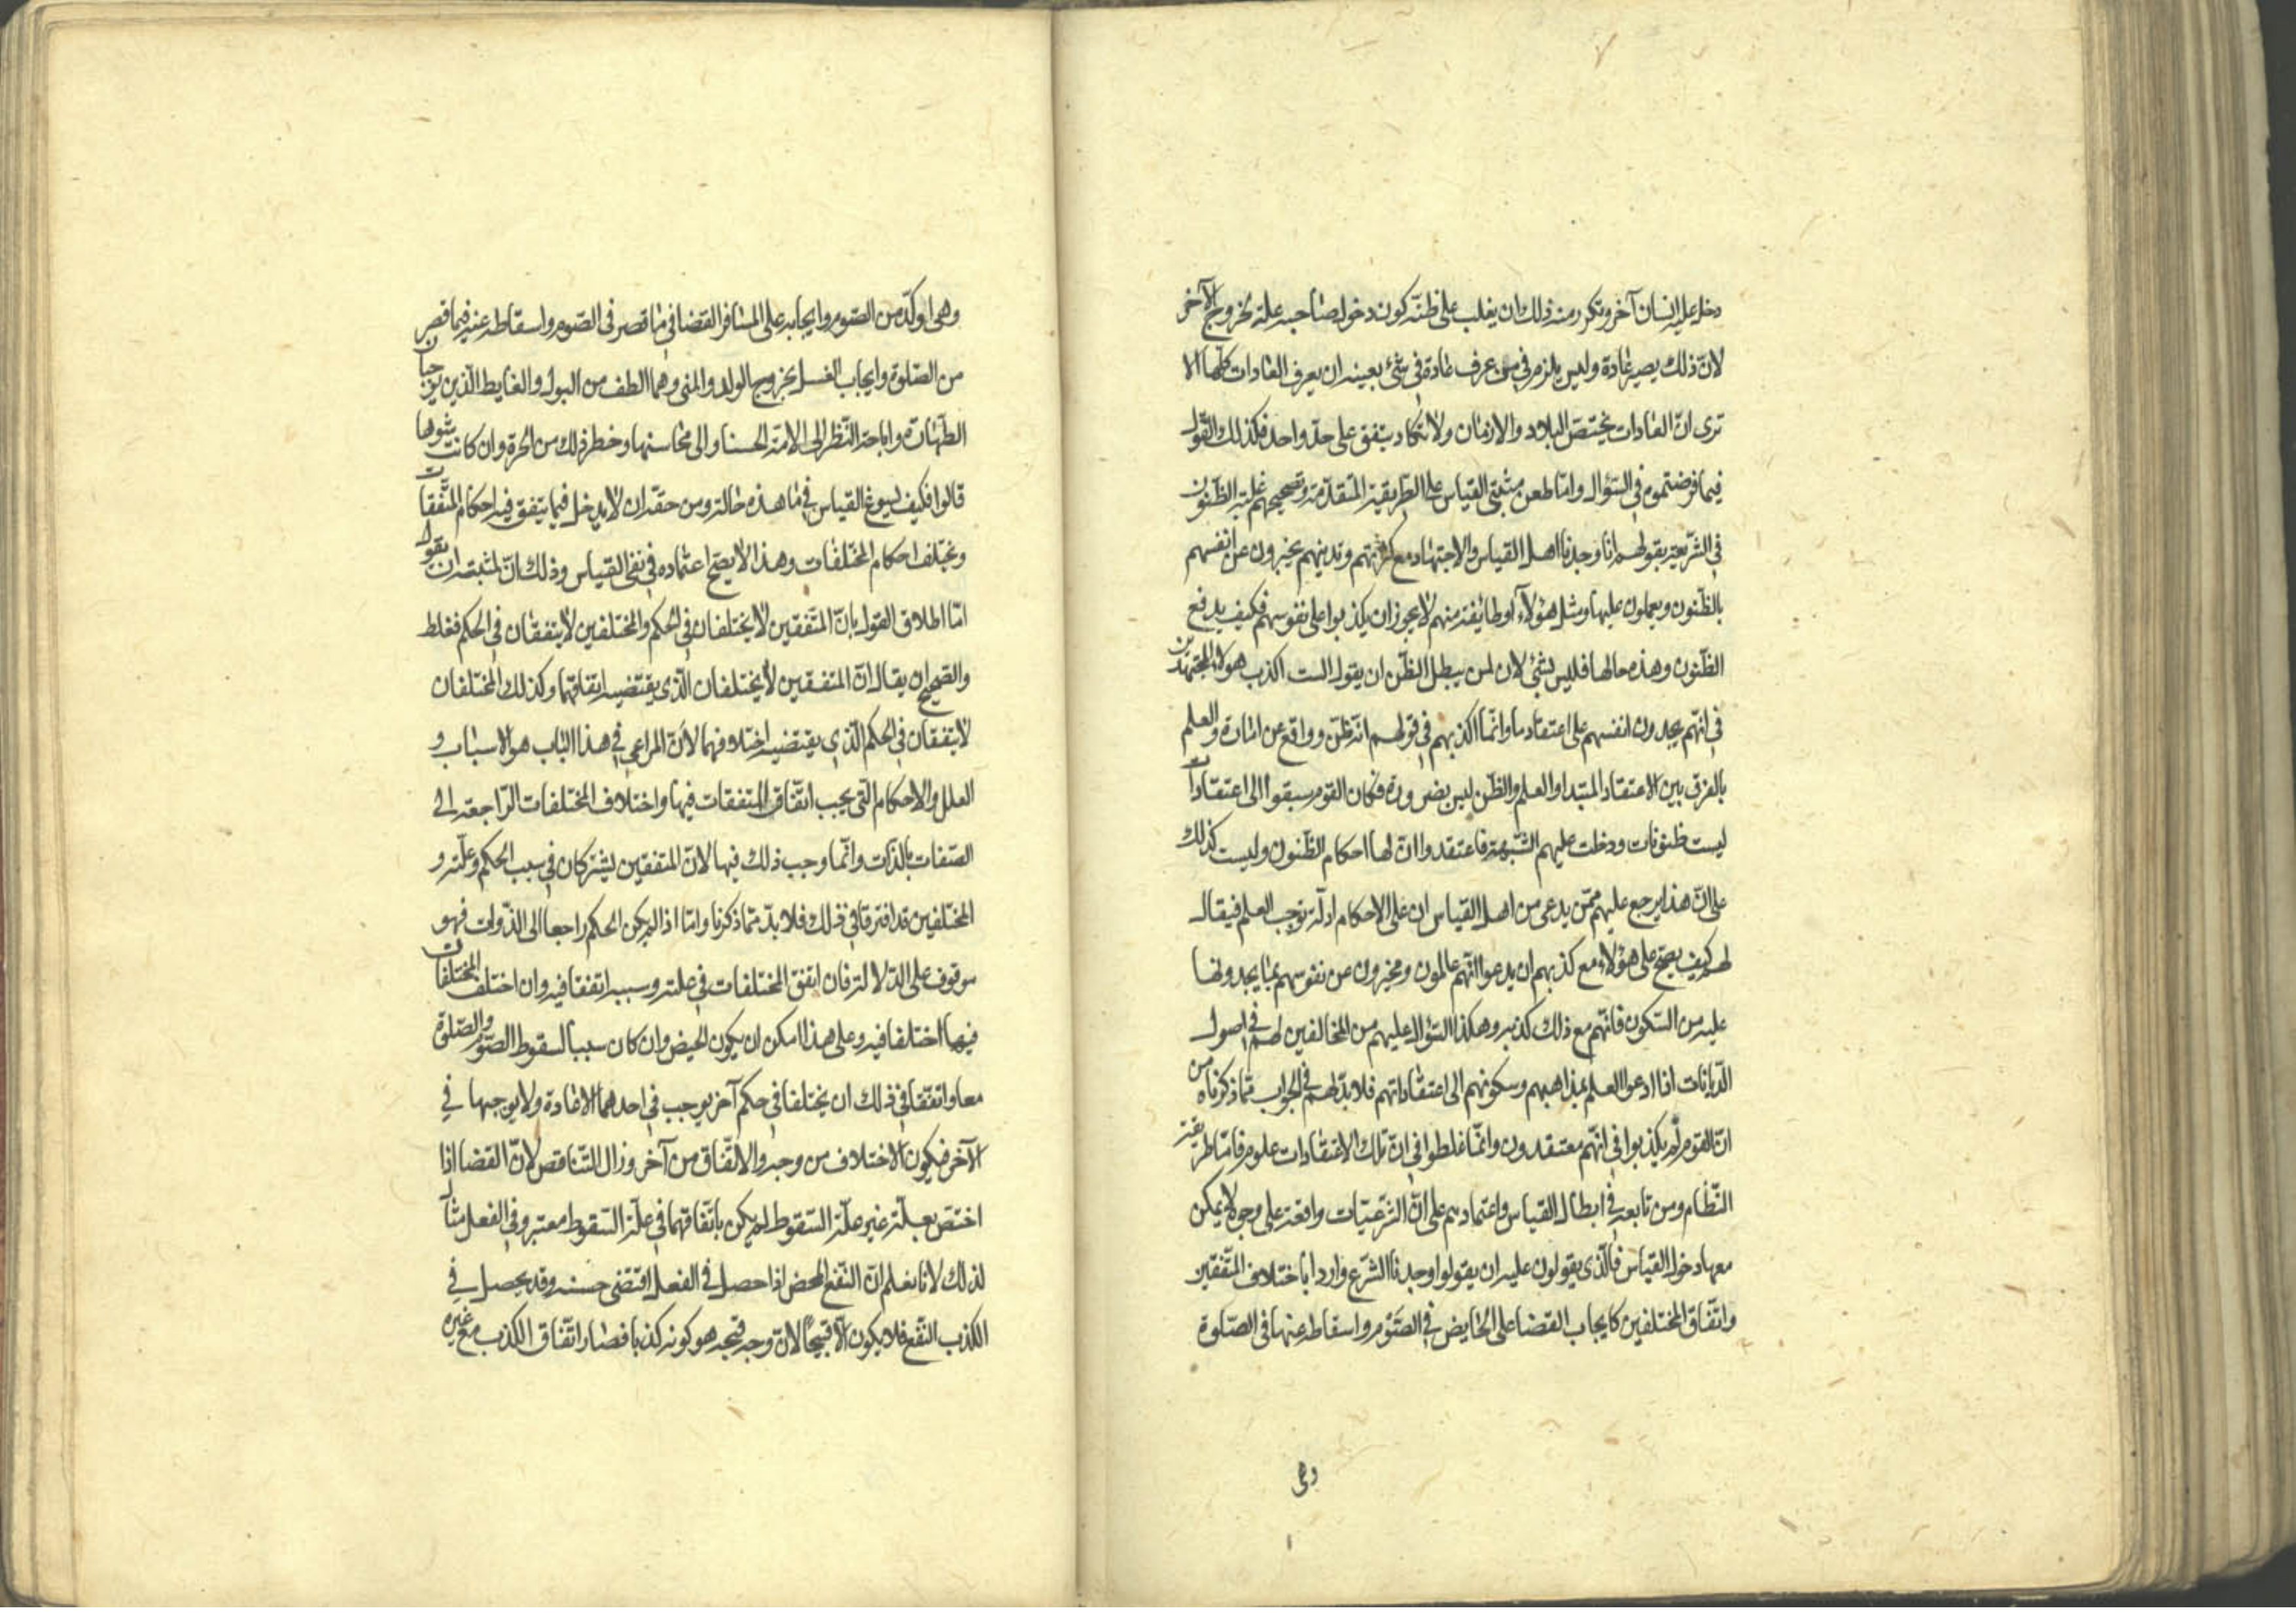 دخل عليه انسان آخر وتكرر منه ذلك ان يغلب على ظنّه كون دخول صاحبه علة لخروج الآخر
لانّ ذلك يصير عادة وليس يلزم في من عرف عادة في شئ بعينه ان يعرف العادات كلّها الا
ترى انّ العادات يختصّ البلاد والازمان ولا تكاد يتفق على حدّ واحد فكذلك القول
فيما فرضتموه في السؤال وامّا طعن مثبتي القياس على الطريقة المتقدّمة وتصحيحهم غلبة الظّنون
في الشّريعة بقولهم انا وجدنا اهل القياس والاجتهاد مع كثرتهم وتدينهم يخبرون عن انفسهم
بالظّنون ويعملون عليها ومثل هؤلاء او طايفة منهم لا يجوز ان يكذبوا على نفوسهم فكيف يدفع
الظّنون وهذه حالها فليس بشئ لان لمن يبطل الظّن ان يقول الست اكذب هولاء المجتهدين
في انّهم يجدون انفسهم على اعتقاد ما وانّما اكذبهم في قولهم انّه ظنّ وواقع عن امارة والعلم
بالفرق بين الاعتقاد المبتدا والعلم والظّن ليس بضرورة فكان القوم سبقوا الى اعتقادات
ليست ظنونات ودخلت عليهم الشّبهة فاعتقدوا انّ لها احكام الظّنون وليست كذلك
على انّ هذا يرجع عليهم ممّن يدعى من اهل القياس ان على الاحكام ادلّة توجب العلم فيقال
لهم كيف يصحّ على هؤلاء مع كذبهم ان يدعوا انّهم عالمون ومخبرون عن نفوسهم بما يجدونها
عليه من السّكون فانّهم مع ذلك كذبه وهكذا السّؤال عليهم من المخالفين لهم في اصول
الدّيانات اذا ادعوا العلم بمذاهبهم وسكونهم الى اعتقاداتهم فلا بدّ لهم في الجواب ممّا ذكرناه من
انّ القوم لم يكذبوا في انّهم معتقدون وانّما غلطوا في انّ تلك الاعتقادات علوم فامّا طريقة
النّظام ومن تابعه في ابطال القياس واعتمادهم على انّ الشّرعيّات واقعة على وجوه لا يمكن
معها دخول القياس فالّذي يقولون عليه ان يقولوا وجدنا الشّرع واردا باختلاف المتّفقين
واتّفاق المختلفين كايجاب القضا على الحايض في الصّوم واسقاطه عنها في الصّلوة
وهى
وهى اوكد من الصّوم وايجابه على المسافر القضا في ما قصر في الصّوم واسقاطه عنه فيما قصر
من الصّلوة وايجاب الغسل بخروج الولد والمنى وهما الطف من البول والغايط الّذين يوجبان
الطّهارة واباحة النّظر الى الامة الحسنا والى محاسنها وخطر ذلك من الحرة وان كانت شوها
قالوا فكيف يسوغ القياس في ما هذه حالته ومن حقّه ان لا يدخل فيما يتفق فيه احكام المتّفقات
ويختلف احكام المختلفات وهذا لا يصحّ اعتماده في نفي القياس وذلك انّ لمثبته ان يقول
امّا اطلاق القول بانّ المتّفقين لا يختلفان في الحكم والمختلفين لا يتفقان في الحكم فغلط
والصّحيح ان يقال انّ المتفقين لا يختلفان الّذي يقتضيه اتفاقهما وكذلك المختلفان
لا يتفقان في الحكم الّذي يقتضيه اختلافهما لانّ المراعي في هذا الباب هو الاسباب و
العلل والاحكام التي يجب اتّفاق المتفقات فيها واختلاف المختلفات الرّاجعة الى
الصّفات بالذّات وانّما وجب ذلك فيها لانّ المتفقين يشتركان في سبب الحكم وعلّته و
المختلفين قد افترقا في ذلك فلا بدّ ممّا ذكرنا وامّا اذا لم يكن الحكم راجعا الى الذّوات فهو
موقوف على الدّلالة فان اتفق المختلفات في علته وسببه اتفقا فيه وان اختلف المختلفات
فيها اختلفا فيه وعلى هذا امكن ان يكون الحيض وان كان سببا لسقوط الصّوم والصّلوة
معا واتفقا في ذلك ان يختلفا في حكم آخر يوجب في احدهما الاعادة ولا يوجبها في
الآخر فيكون الاختلاف من وجه والاتّفاق من آخر وزال التّناقص لانّ القضا اذا
اختصّ بعلّة غير علّة السّقوط لم يكن باتّفاقهما في علّة السّقوط معتبر وفي الفعل مثال
لذلك لانا نعلم انّ النّفع المحض اذا حصل في الفعل اقتضى حسنه وقد يحصل في
الكذب النّفع فلا يكون الّا قبيحا لانّ وجه قبحه هو كونه كذبا فصار اتّفاق الكذب مع غيره